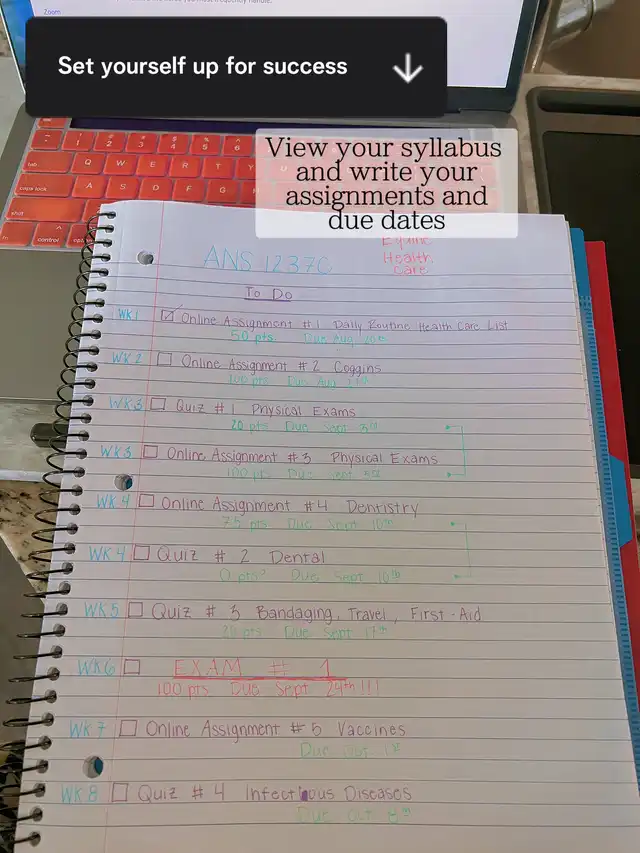 Zoom
Set yourself up for success
View your syllabus
and write your
assignments and
due dates
tab Q W E R T Y
caps lock A S D F
shift
control
ANS 1237C
Equine
Health
Care
To Do
WK1 Online Assignment #1 Daily Routine Health Care List
50 pts. Due Aug. 20th
WK 2 Online Assignment #2 Coggins
100 pts Due Aug
WK3 Quiz #1 Physical Exams
20 pts Due Sept 3rd
WK3 Online Assignment #3 Physical Exams
100 pts Due Sept 3rd
WK 4 Online Assignment #4 Dentistry
75 pts Due Sept 10th
WK 4 Quiz # 2 Dental
0 pts? Due Sept 10th
WK5 Quiz # 3 Bandaging, Travel, First-Aid
pts Due Sept 17th
WK6 EXAM # 1
100 pts Due Sept 24th!!!
WK 7 Online Assignment #5 Vaccines
Due Oct 1st
WK 8 Quiz # 4 Infectious Diseases
Due Oct 8th